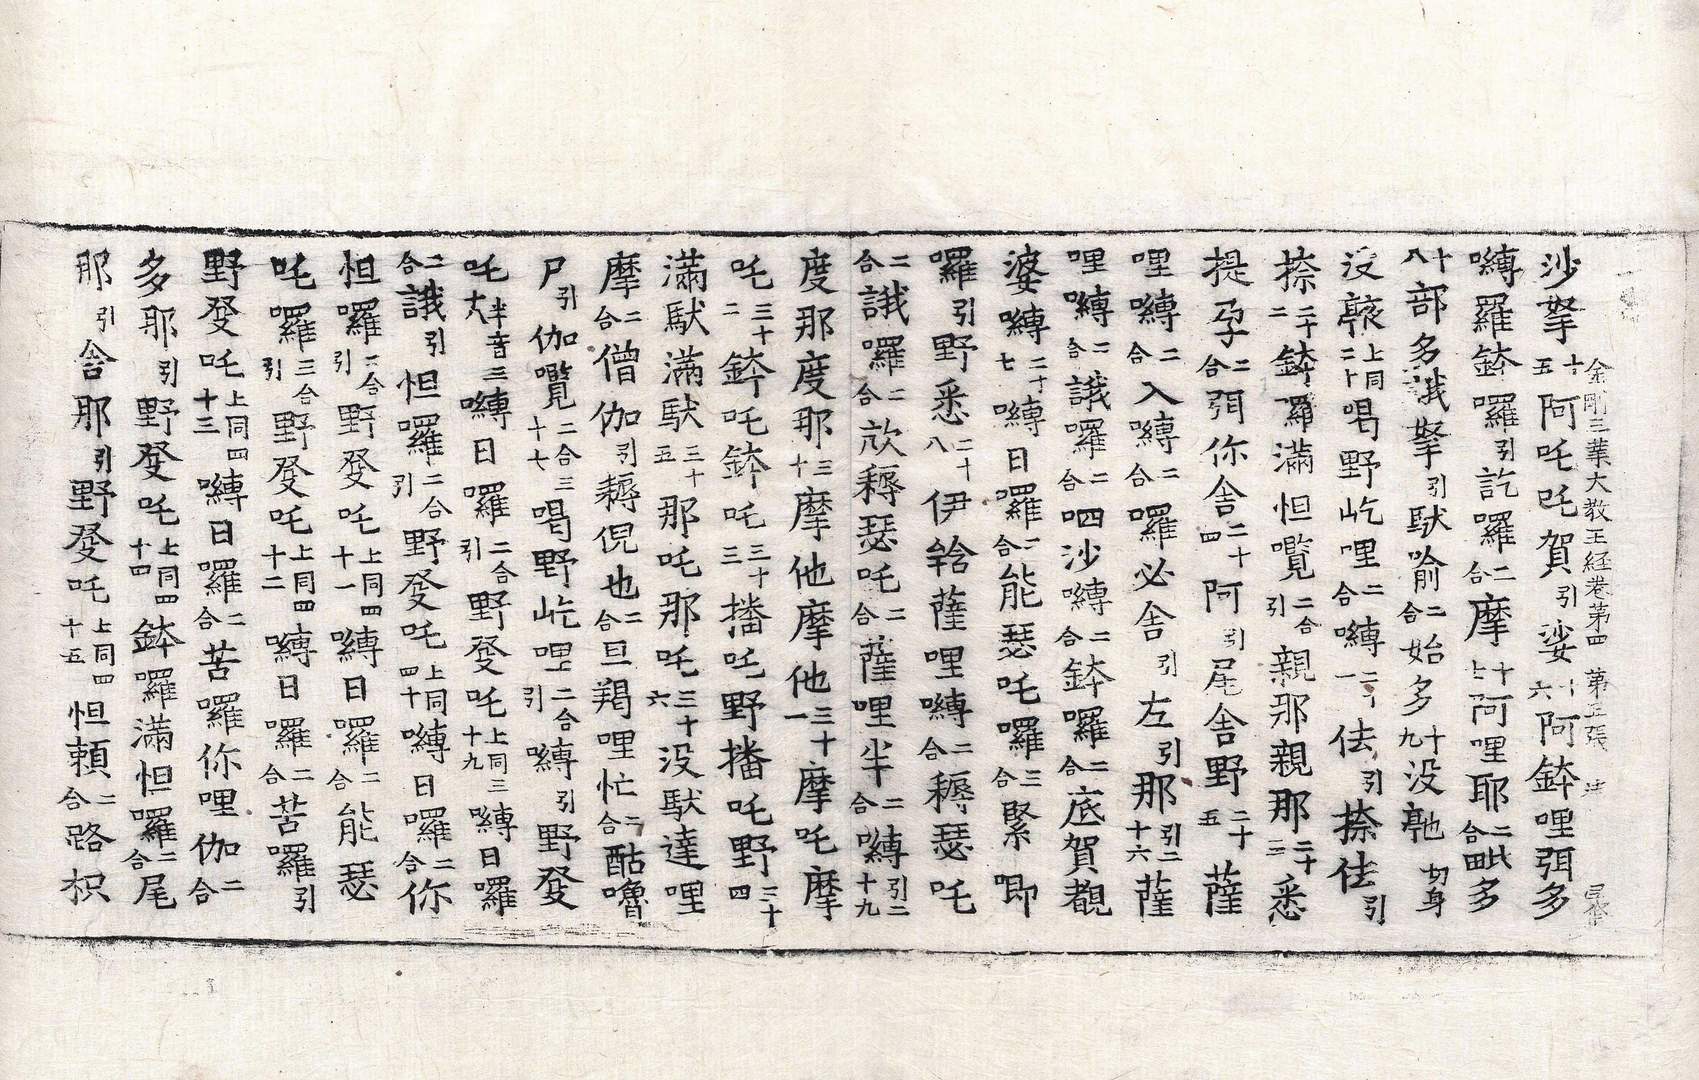 金剛三業大教王経卷第四 第五張
沙拏十五阿吒吒賀引娑十六阿鉢哩弭多
嚩羅鉢囉引訖囉二合摩十七阿哩耶二合毗多
十八部多誐拏引馱喻二合始多十九没馳切身
没䫂上同二十喝野屹哩二合嚩二十一佉引捺佉引
捺二十二鉢囉滿怛囕二合引親那親那二十三悉
提孕二合弭你舍二十四阿引尾舍野二十五薩
哩嚩二合入嚩二合囉必舍引左引那引二十六薩
哩嚩二合誐囉二合呬沙嚩二合鉢囉二合底賀覩
婆嚩二十七嚩日囉二合能瑟吒囉三合緊唧
囉引野悉二十八伊䤈薩哩嚩二合耨瑟吒
二合誐囉二合欻耨瑟吒二合薩哩半二合嚩引二十九合
度那度那三十摩他摩他三十一摩吒摩
吒三十二鉢吒鉢吒三十三播吒野播吒野三十四
滿馱滿馱三十五那吒那吒三十六没馱達哩
摩二合僧伽引耨倪也二合亘羯哩忙二合酤嚕
尸引伽囕二合三十七喝野屹哩二合引嚩引野發
吒半音三十八嚩日囉二合引野發吒上同三十九嚩日囉
二合誐引怛囉二合引野發吒上同四十嚩日囉二合你
怛囉二合引野發吒上同四十一嚩日囉二合能瑟
吒囉三合引野發吒上同四十二嚩日囉二合苦囉引
野發吒上同四十三嚩日囉二合苦囉你哩伽二合
多耶引野發吒上同四十四鉢囉滿怛囉二合尾
那引舍那引野發吒上同四十五怛頼二合路枳